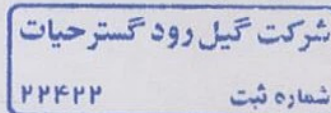 شرکت گیل رود گستر حیات
شماره ثبت ۲۲۴۲۲